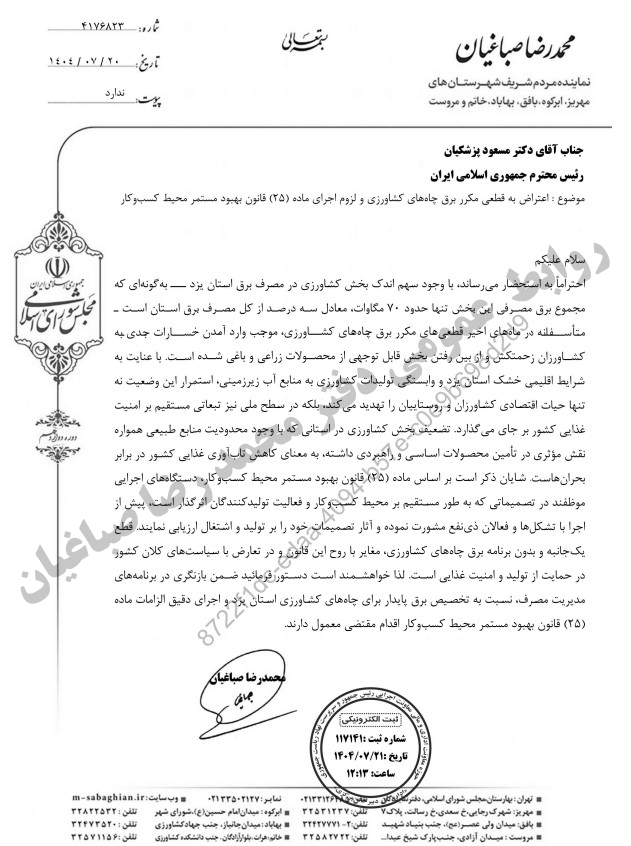 بسمه تعالی
شماره: ۴۱۷۶۸۲۳
تاریخ: ۱۴۰۴/۰۷/۲۰
پیوست: ندارد
محمدرضا صباغیان
نماینده مردم شریف شهرستان‌های
مهریز، ابرکوه، بافق، بهاباد، خاتم و مروست
جمهوری اسلامی ایران
مجلس شورای اسلامی
دوره دوازدهم
جناب آقای دکتر مسعود پزشکیان
رئیس محترم جمهوری اسلامی ایران
موضوع : اعتراض به قطعی مکرر برق چاه‌های کشاورزی و لزوم اجرای ماده (۲۵) قانون بهبود مستمر محیط کسب‌وکار
سلام علیکم
احتراماً به استحضار می‌رساند، با وجود سهم اندک بخش کشاورزی در مصرف برق استان یزد ــــ به‌گونه‌ای که
مجموع برق مصرفی این بخش تنها حدود ۷۰ مگاوات، معادل سه درصد از کل مصرف برق استان است ــ
متأسفانه در ماه‌های اخیر قطعی‌های مکرر برق چاه‌های کشاورزی، موجب وارد آمدن خسارات جدی به
کشاورزان زحمتکش و از بین رفتن بخش قابل توجهی از محصولات زراعی و باغی شده است. با عنایت به
شرایط اقلیمی خشک استان یزد و وابستگی تولیدات کشاورزی به منابع آب زیرزمینی، استمرار این وضعیت نه
تنها حیات اقتصادی کشاورزان و روستاییان را تهدید می‌کند، بلکه در سطح ملی نیز تبعاتی مستقیم بر امنیت
غذایی کشور بر جای می‌گذارد. تضعیف بخش کشاورزی در استانی که با وجود محدودیت منابع طبیعی همواره
نقش مؤثری در تأمین محصولات اساسی و راهبردی داشته، به معنای کاهش تاب‌آوری غذایی کشور در برابر
بحران‌هاست. شایان ذکر است بر اساس ماده (۲۵) قانون بهبود مستمر محیط کسب‌وکار، دستگاه‌های اجرایی
موظفند در تصمیماتی که به طور مستقیم بر محیط کسب‌وکار و فعالیت تولیدکنندگان اثرگذار است، پیش از
اجرا با تشکل‌ها و فعالان ذی‌نفع مشورت نموده و آثار تصمیمات خود را بر تولید و اشتغال ارزیابی نمایند. قطع
یک‌جانبه و بدون برنامه برق چاه‌های کشاورزی، مغایر با روح این قانون و در تعارض با سیاست‌های کلان کشور
در حمایت از تولید و امنیت غذایی است. لذا خواهشمند است دستور فرمائید ضمن بازنگری در برنامه‌های
مدیریت مصرف، نسبت به تخصیص برق پایدار برای چاه‌های کشاورزی استان یزد و اجرای دقیق الزامات ماده
(۲۵) قانون بهبود مستمر محیط کسب‌وکار اقدام مقتضی معمول دارند.
روابط عمومی دفتر محمدرضا صباغیان
محمدرضا صباغیان
ثبت الکترونیکی
شماره ثبت :۱۱۷۱۴۱
تاریخ :۱۴۰۴/۰۷/۲۱
ساعت: ۱۲:۱۳
تهران: بهارستان،مجلس شورای اسلامی، دفتر نمایندگان نمابر: ۰۲۱۳۳۵۰۲۱۲۷ وب سایت: m-sabaghian.ir
مهریز: شهرک رجایی،خ سعدی،خ رسالت، پلاک۷ تلفن: ۳۲۵۳۱۲۳۷ ابرکوه: میدان امام حسین(ع)،شورای شهر تلفن: ۳۲۸۲۲۵۳۲
بافق: میدان ولی عصر(عج)، جنب بنیاد شهید تلفن: ۲-۳۲۴۲۷۷۷۱ بهاباد: میدان جانباز، جنب جهادکشاورزی تلفن: ۳۲۴۷۳۵۲۰
مروست: میدان آزادی، جنب پارک شیخ عبدا... تلفن: ۳۲۵۸۲۷۲۲ خاتم: هرات: بلوارآزادگان، جنب دانشکده کشاورزی تلفن: ۳۲۵۷۱۱۵۶